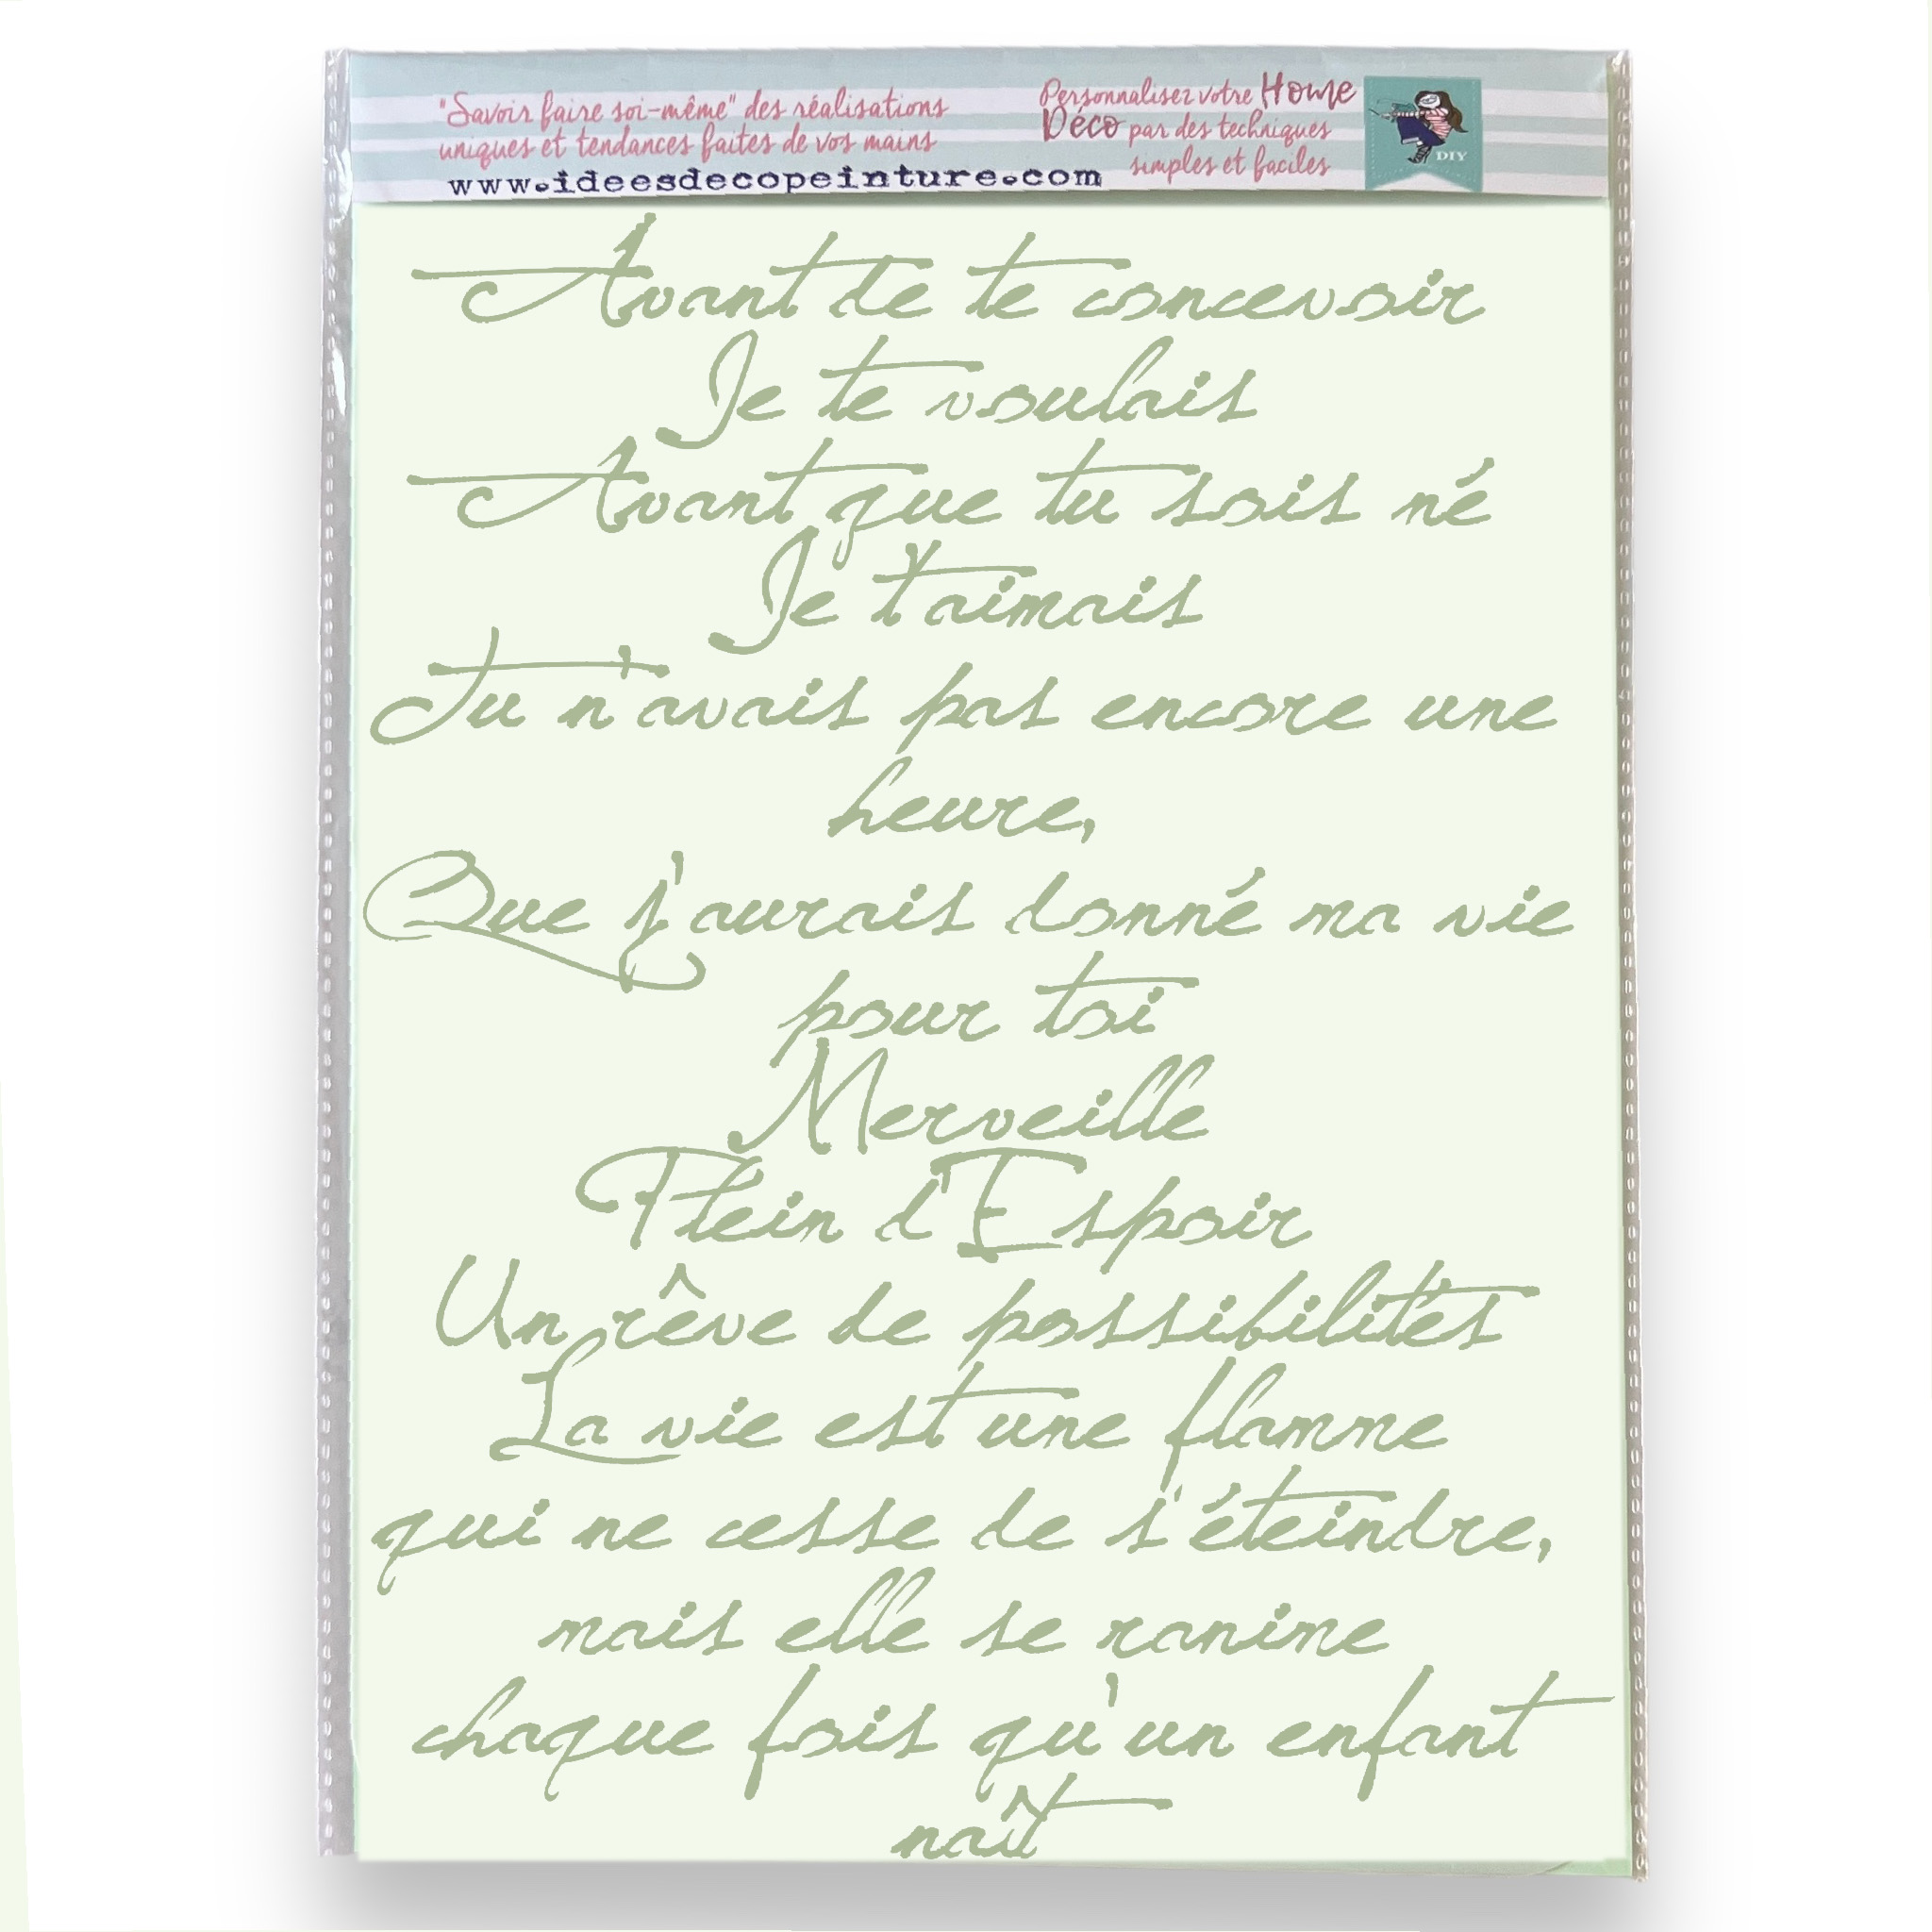 "Savoir faire soi-même" des réalisations
uniques et tendances faites de vos mains
www.ideesdecopeinture.com
Personnalisez votre Home
Déco par des techniques
simples et faciles
DIY
Avant de te concevoir
Je te voulais
Avant que tu sois né
Je t'aimais
Tu n'avais pas encore une
heure,
Que j'aurais donné ma vie
pour toi
Merveille
Plein d'Espoir
Un rêve de possibilités
La vie est une flamme
qui ne cesse de s'éteindre,
mais elle se ranime
chaque fois qu'un enfant
naît